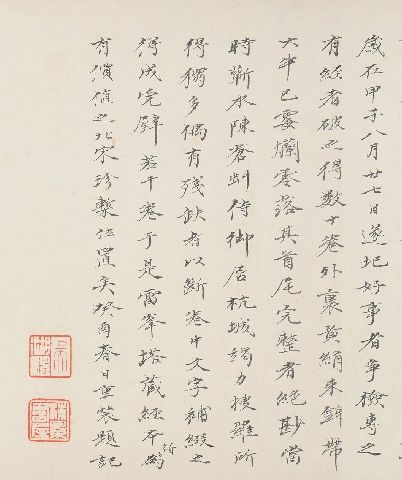 歲在甲子八月廿七日遂圮好事者爭撥專之
有經者破之得數十卷外裹黃絹束錦帶
大半已霉爛零落其首尾完整者絕尠當
時蘄水陳蒼虬侍御居杭城竭力搜羅所
得獨多偶有殘缺者以斷卷中文字補綴之
得成完璧若干卷于是雷峯塔藏經為
有價值之北宋珍槧位置矣癸酉春日重裝題記
梅景書屋